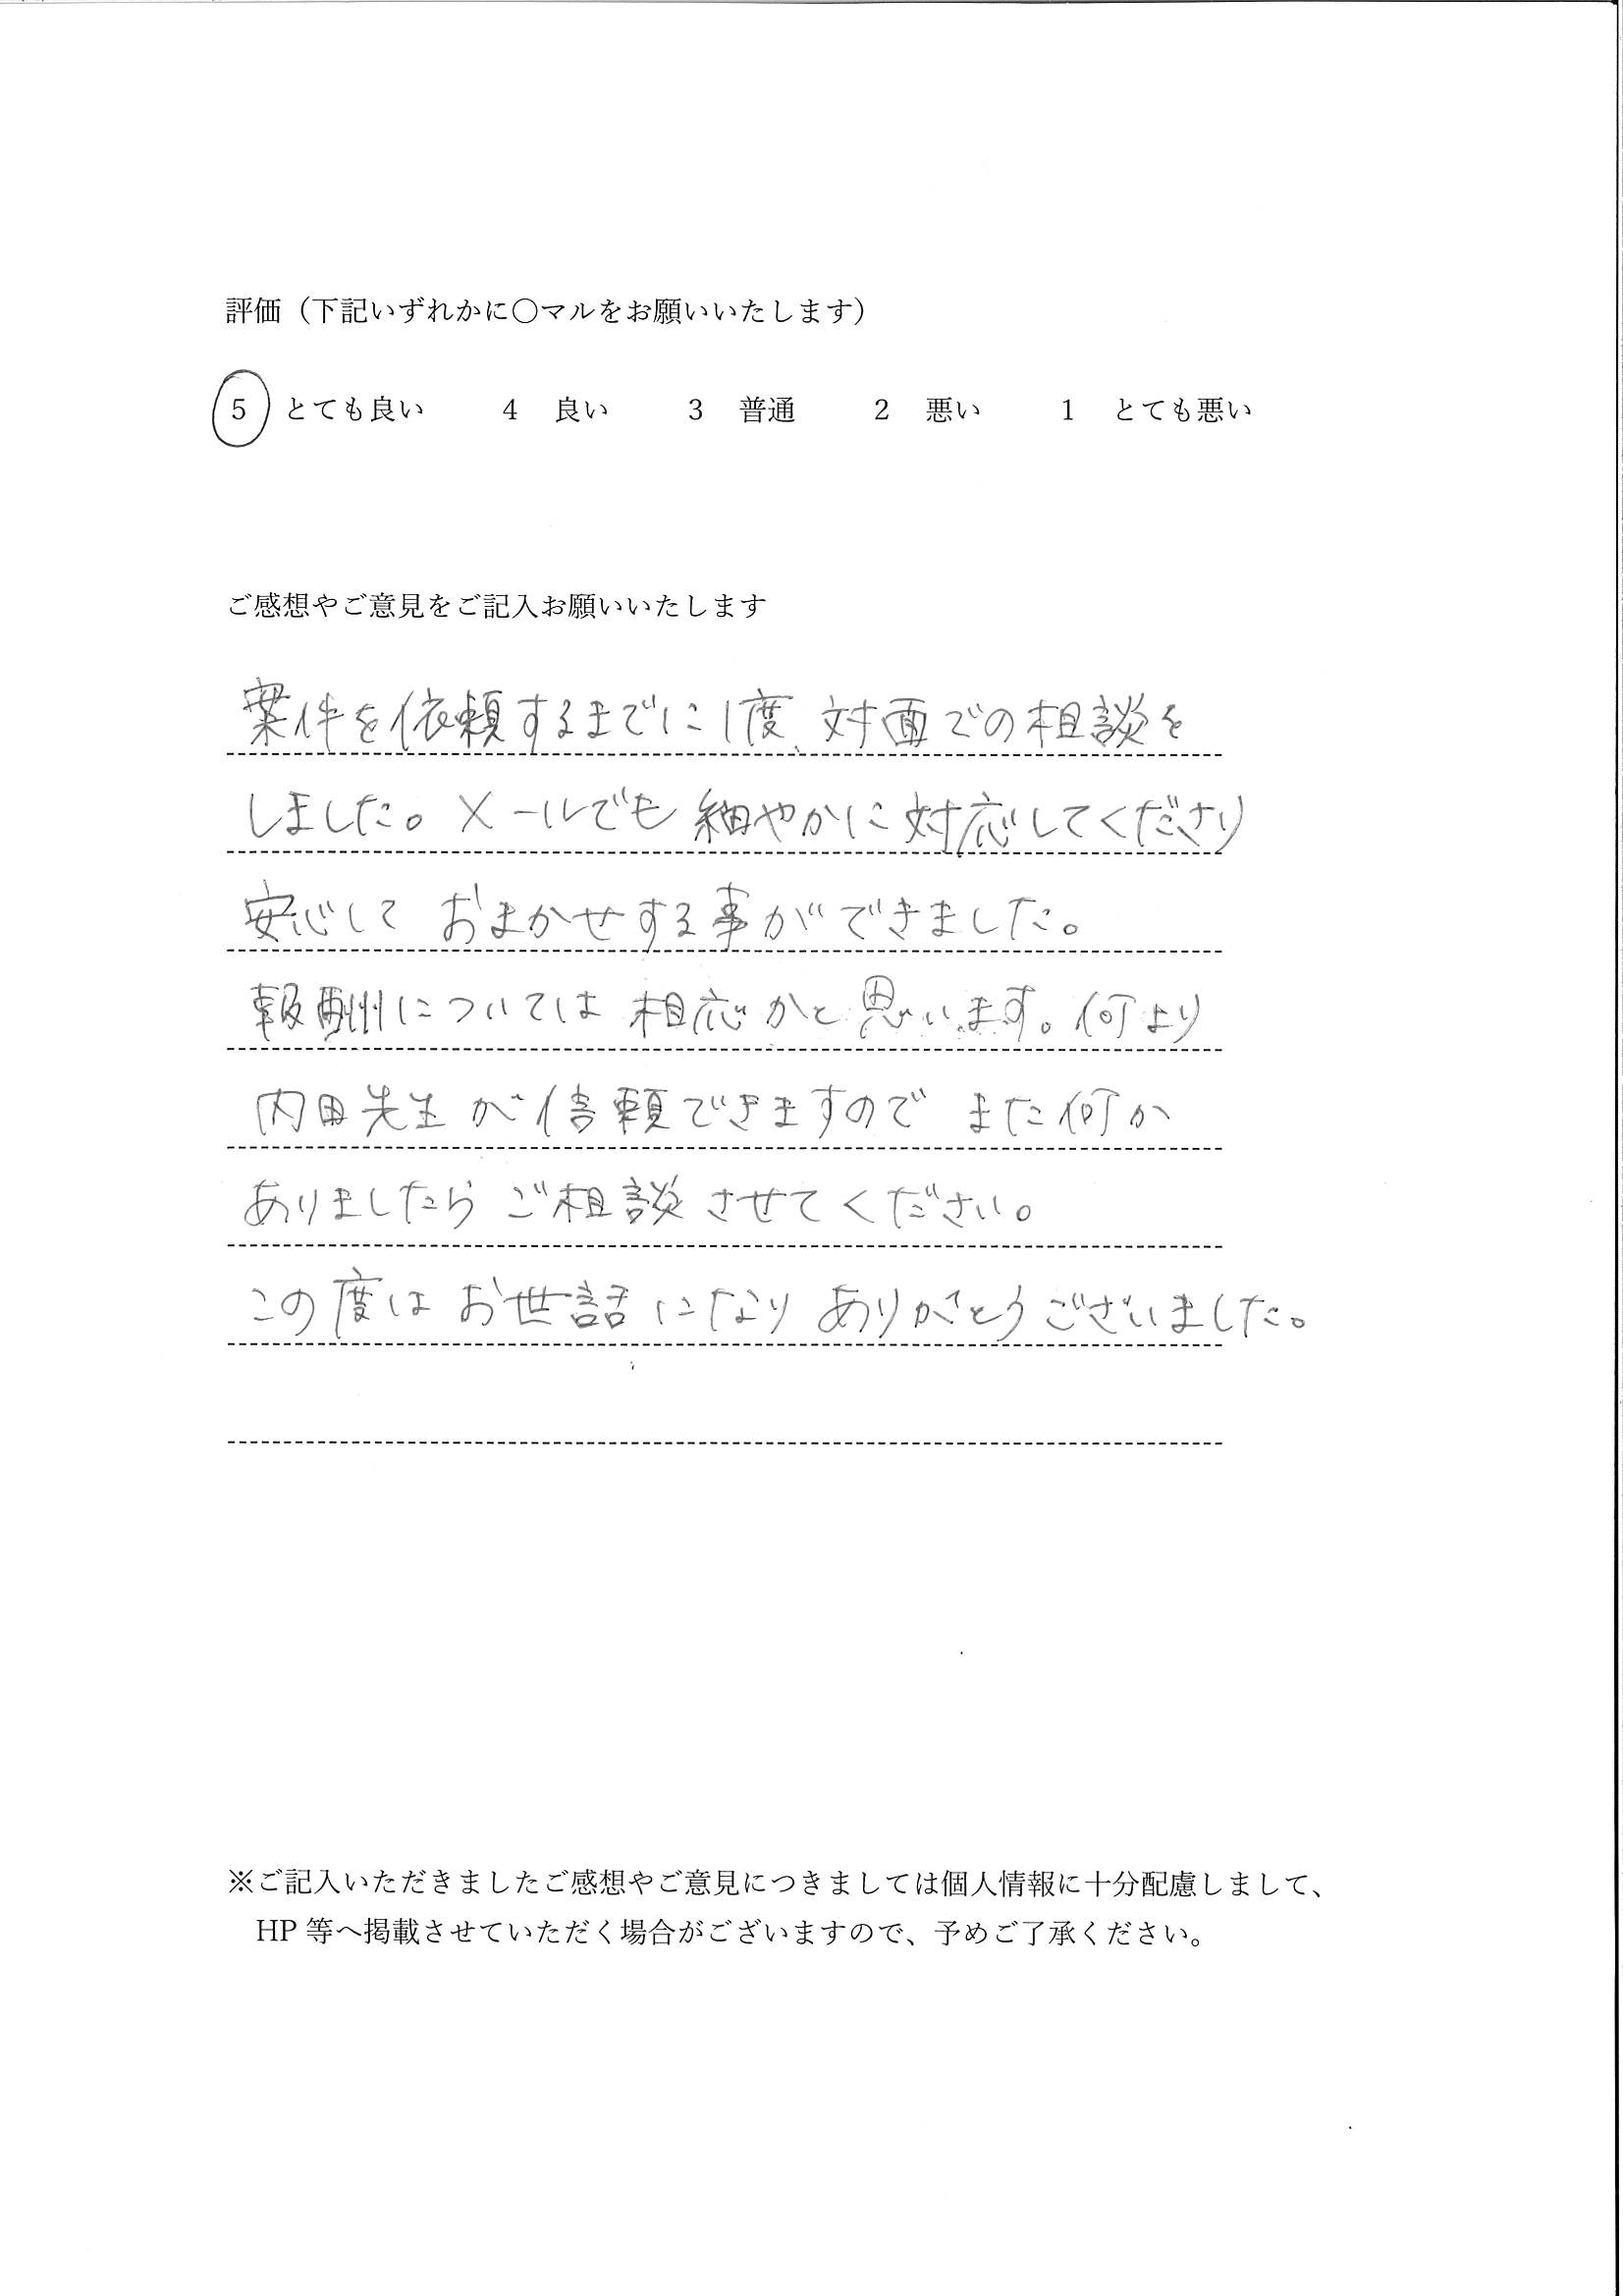 評価（下記いずれかに〇マルをお願いいたします）
5 とても良い 4 良い 3 普通 2 悪い 1 とても悪い
ご感想やご意見をご記入お願いいたします
案件を依頼するまでに1度、対面での相談を
しました。メールでも細やかに対応してくださり
安心して おまかせする事ができました。
報酬については相応かと思います。何より
内田先生が信頼できますので また何か
ありましたら ご相談させてください。
この度は お世話になり ありがとうございました。
※ご記入いただきましたご感想やご意見につきましては個人情報に十分配慮しまして、
HP 等へ掲載させていただく場合がございますので、予めご了承ください。